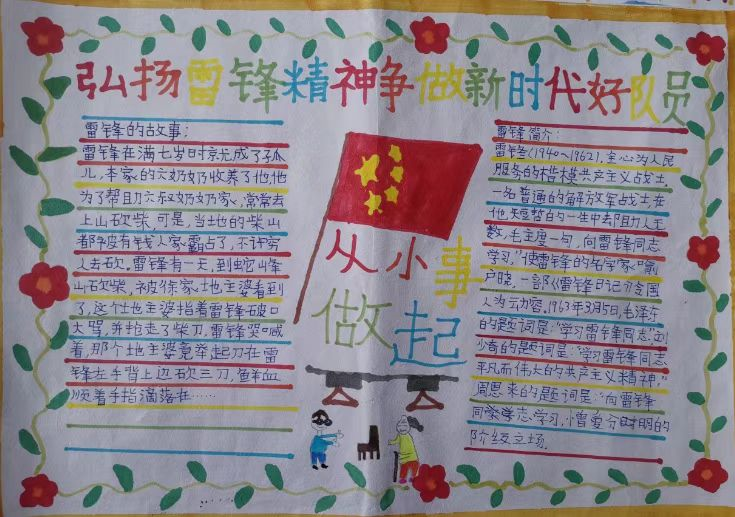 弘扬雷锋精神争做新时代好队员
雷锋的故事:
雷锋在满七岁时就成了孤
儿,本家的六奶奶收养了他,他
为了帮助六叔奶奶家,常常去
上山砍柴,可是,当地的柴山
都被有钱人家霸占了,不许穷
人去砍,雷锋有一天,到蛇山峰
山砍柴,被徐家土地主婆看到
了,这个土地主婆指着雷锋破口
大骂,并抢走了柴刀,雷锋哭喊
着,那个地主婆竟举起刀在雷
锋左手背上边砍三刀,鲜血
顺着手指滴落在……
从小事
做起
雷锋简介:
雷锋(1940~1962),全心为人民
服务的楷模共产主义战士.
一名普通的解放军战士在
他短暂的一生中去助人无
数,毛主度一句,向雷锋同志
学习,"使雷锋的名字家喻
户晓,一部《雷锋日记》令国
人为云动容.1963年3月5日,毛泽东
的题词是:"学习雷锋同志"刘
少奇的题词是:"学习雷锋同志
平凡而伟大的共产主义精神"
周恩来的题词是:"向雷锋
同志学习,憎爱分明的
阶级立场.